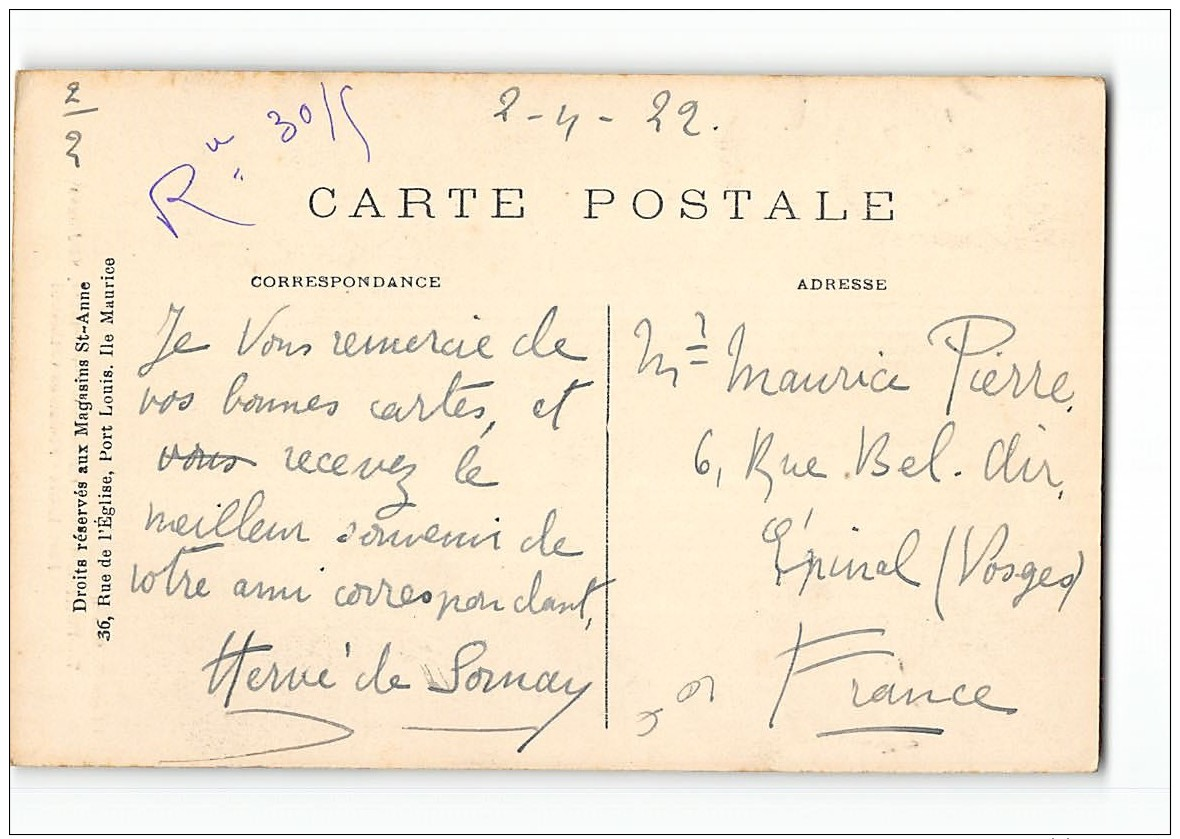 2
2
Ru 30/5
2-4-22.
CARTE POSTALE
CORRESPONDANCE
ADRESSE
Droits réservés aux Magasins St-Anne
36, Rue de l'Église, Port Louis. Ile Maurice
Je vous remercie de
vos bonnes cartes, et
vous recevez le
meilleur souvenir de
votre ami correspondant,
Hervé de Sornay
Mr Maurice Pierre,
6, Rue Bel. Air,
Épinal (Vosges)
France